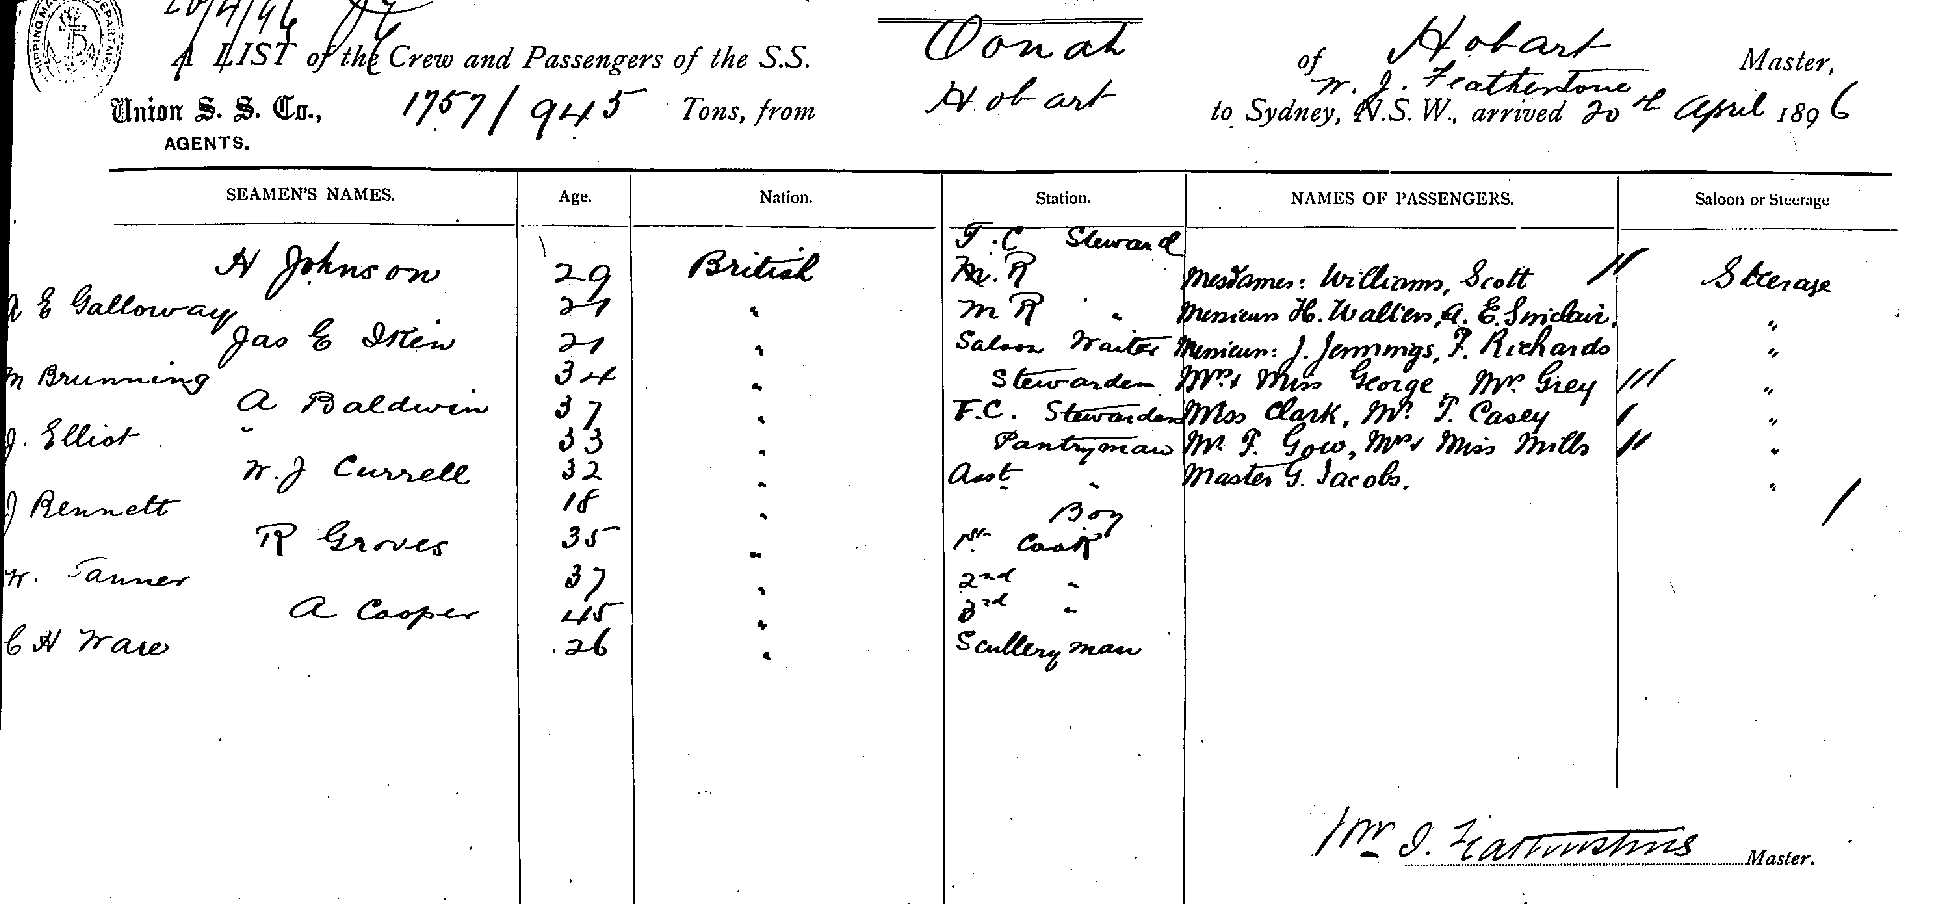 20/4/96
A LIST of the Crew and Passengers of the S.S. Oonah of Hobart Master,
W. J. Featherstone
Union S. S. Co., 1757/945 Tons, from Hobart to Sydney, N.S.W., arrived 20th April 1896
AGENTS.
SEAMEN'S NAMES. Age. Nation. Station. NAMES OF PASSENGERS. Saloon or Steerage
F.C Steward
H Johnson 29 British M.R Mesdames: Williams, Scott " Steerage
A E Galloway 21 " M R " Messieurs H. Walters, A. E. Sinclair, "
Jas E Ikin 21 " Saloon Waiter Messieurs: J. Jennings, F. Richards "
M Brunning 34 " Stewardess Mrs & Miss George, Mr. Grey /// "
A Baldwin 37 " F.C. Stewardess Miss Clark, Mr. T. Casey / "
J. Elliot " 33 " Pantryman Mr. F. Gow, Mrs & Miss Mills // "
W. J Currell 32 " Asst " Master G. Jacobs. "
J Bennett 18 " Boy /
R Groves 35 " 1st Cook
W. Tanner 37 " 2nd "
A Cooper 45 " 3rd "
C H Ware 26 " Sculleryman
Wm J. Featherstone Master.